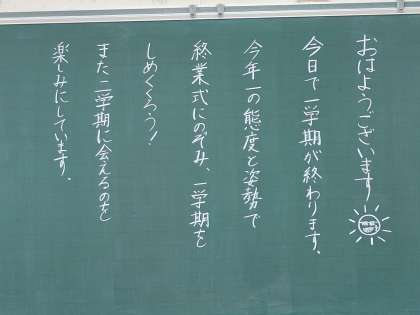 おはようございます
今日で一学期が終わります。
今年一の態度と姿勢で
終業式にのぞみ、一学期を
しめくくろう!
また二学期に会えるのを
楽しみにしています。